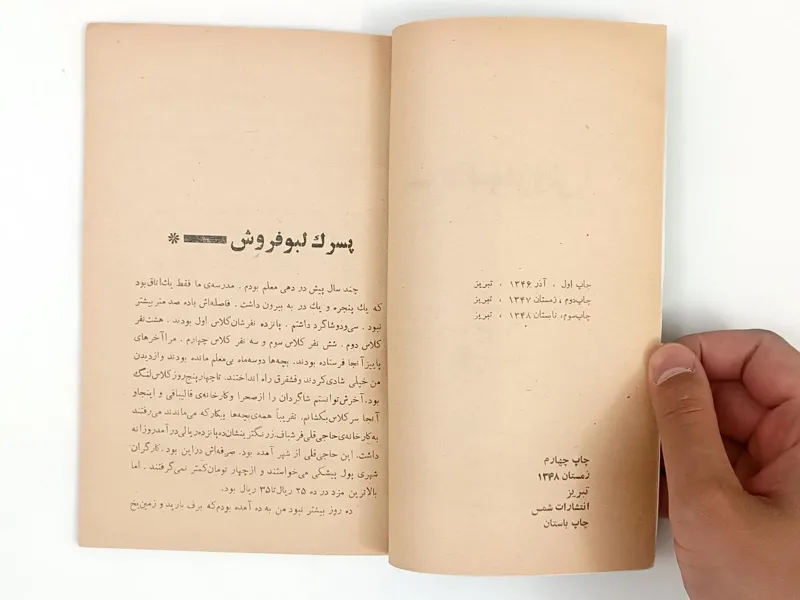 چاپ اول ، آذر ۱۳۴۶ ، تبریز
چاپ‌دوم ، زمستان ۱۳۴۷ ، تبریز
چاپ‌سوم، تابستان ۱۳۴۸ ، تبریز
چاپ چهارم
زمستان ۱۳۴۸
تبریز
انتشارات شمس
چاپ باستان
پسرك لبوفروش *
چند سال پیش در دهی معلم بودم . مدرسه‌ی ما فقط یك‌اتاق‌بود
که یك پنجره و یك در به بیرون داشت . فاصله‌اش باده صدمتر‌بیشتر
نبود . سی‌ودوشاگرد داشتم . پانزده نفرشان‌کلاس اول بودند . هشت‌نفر
کلاس دوم . شش نفر کلاس سوم و سه نفر کلاس چهارم . مرا آخرهای
پاییز آنجا فرستاده بودند. بچه‌ها دوسه‌ماه بی‌معلم مانده بودند وازدیدن
من خیلی شادی‌کردند وقشقرق راه انداختند. تاچهارپنج‌روز کلاس‌لنگ
بود. آخرش‌توانستم شاگردان را ازصحرا وکارخانه‌ی قالیبافی و اینجاو
آنجا سرکلاس‌بکشانم. تقریباً همه‌ی بچه‌ها بیکارکه می‌ماندند می‌رفتند
به‌کارخانه‌ی حاجی‌قلی‌فرشباف. زرنگترینشان‌ده‌پانزده‌ریالی‌درآمدروزانه
داشت. این حاجی‌قلی از شهر آمده بود. صرفه‌اش دراین بود .کارگران
شهری پول پیشکی می‌خواستند و ازچهار تومان‌کمتر نمی‌گرفتند . اما
بالاترین مزد در ده ۲۵ ریال‌تا ۳۵ ریال بود.
ده روز بیشتر نبود من به ده آمده بودم‌که برف بارید و زمین‌یخ